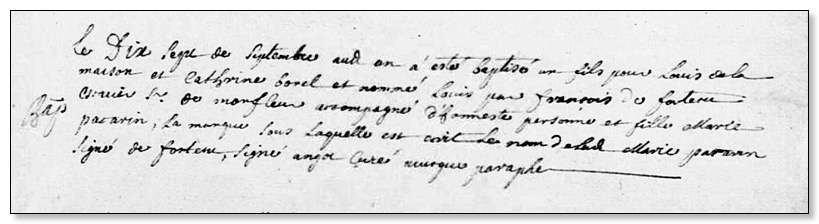 Le Dix sept de septembre aud an a esté baptisé un fils pour Louis de la
maison et Cathrine borel et nommé Louis par françois de forteu
Bap
Escuier Sr. de monfleur accompagné d'honneste personne et fille Marie
pacarin, la marque sous Laquelle est ecrit Le nom de lad Marie pacarin
signé de forteu, signé angot Curé avecque paraphe